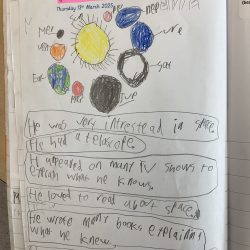 Thursday 13th March 2025
Mer
ver
Ear
Jue
Sat
ure
nep
He was very intrestead in space.
He had a telascope.
It appeared on many TV shows to
explain what he knows.
He loved to read about space.
He wrote many books explaining
what he knew.